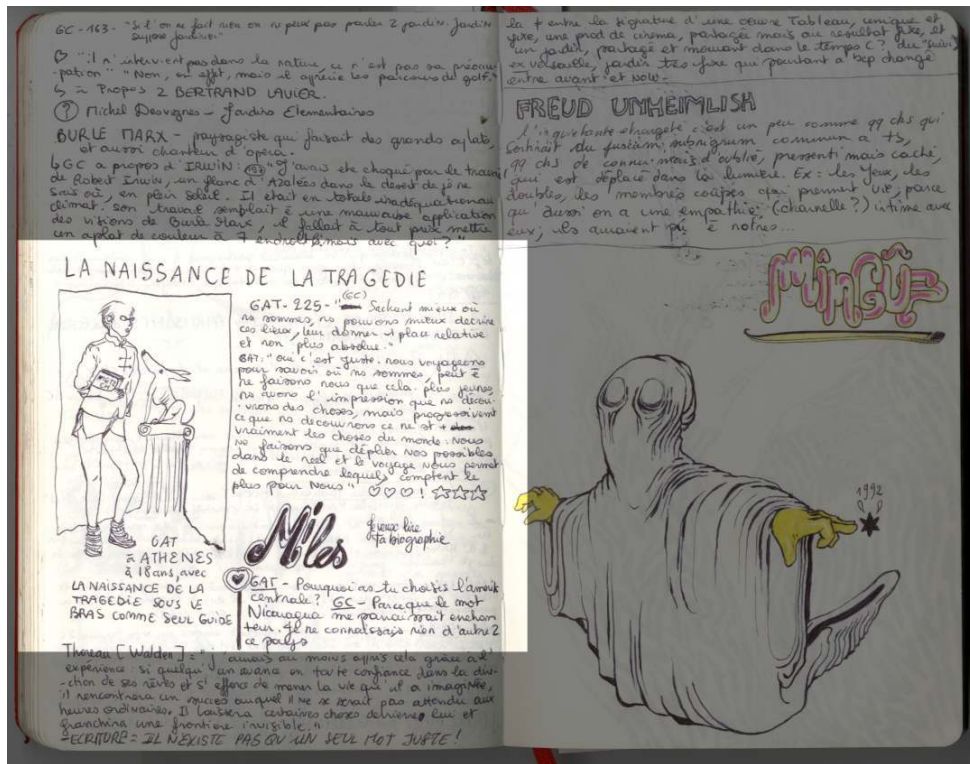 GC - 163 - "Si l'on ne fait rien on ne peux pas parler 2 jardin. Jardin
suppose jardinier"
"il n'intervient pas dans la nature, ce n'est pas sa préoccu-
pation" "Non, en effet, mais il apprécie les parcours de golf."
à propos 2 BERTRAND LAVIER.
? Michel Desvignes - Jardins Elementaires
BURLE MARX - paysagiste qui faisait des grands aplats,
et aussi chanteur d'opéra.
GC a propos d'IRWIN: "J'avais été choqué par le travail
de Robert Irwin, un flanc d'Azalées dans le désert de je ne
sais où, en plein soleil. Il était en totale inadéquation au
climat. son travail semblait ê une mauvaise application
des visions de Burle Marx, il fallait à tout prix mettre
un aplat de couleur à 7 endroit là mais avec quoi?"
LA NAISSANCE DE LA TRAGEDIE
GAT - 225 - "(GC) Sachant mieux où
ns sommes, ns pouvons mieux décrire
ces lieux, leur donner 1 place relative
et non plus absolue."
GAT: "oui c'est juste. nous voyageons
pour savoir où ns sommes, peut ê
ne faisons nous que cela. plus jeunes
ns avons l'impression que ns décou-
vrons des choses, mais progressivent
ce que ns decouvrons ce ne st +
vraiment les choses du monde: nous
ne faisons que déplier nos possibles
dans le reel et le voyage nous permet
de comprendre lesquels comptent le
plus pour nous" ♡♡♡! ☆☆☆
Miles
je veux lire
ta biographie
GAT
à ATHENES
à 18 ans, avec
LA NAISSANCE DE LA
TRAGEDIE SOUS LE
BRAS COMME SEUL GUIDE
GAT - Pourquoi as tu choisis l'amérik
centrale? GC - Parce que le mot
Nicaragua me paraissait enchan
teur. Je ne connaissais rien d'autre 2
ce pays
Thoreau [Walden] = "J'aurais au moins appris cela grâce à l'
expérience: si quelqu'un avance en toute confiance dans la dire-
-ction de ses rêves et s'efforce de mener la vie qu'il a imaginée,
il rencontrera un succès auquel il ne se serait pas attendu aux
heures ordinaires. Il laissera certaines choses derrière lui et
franchira une frontière invisible."
- ECRITURE = IL N'EXISTE PAS QU'UN SEUL MOT JUSTE!
la ≠ entre la signature d'une oeuvre Tableau, unique et
fixe, une prod de cinema, partagée mais au resultat fixe, et
un jardin, partagé et mouvant dans le temps (? du "suivi"
ex versaille, jardin tès fixe qui pourtant a bcp changé
entre avant et now -
FREUD UNHEIMLISH
l'inquiétante etrangeté c'est un peu comme qq chs qui
sortirait du commun a ts,
qq chs de connu mais d'oublié, pressenti mais caché,
qui est déplacé dans la lumière. Ex: les yeux, les
doubles, les membres coupés qui prennent vie; parce
qu'aussi on a une empathie (charnelle?) intime avec
eux; ils auraient pu ê nôtres...
MINGUS
1992